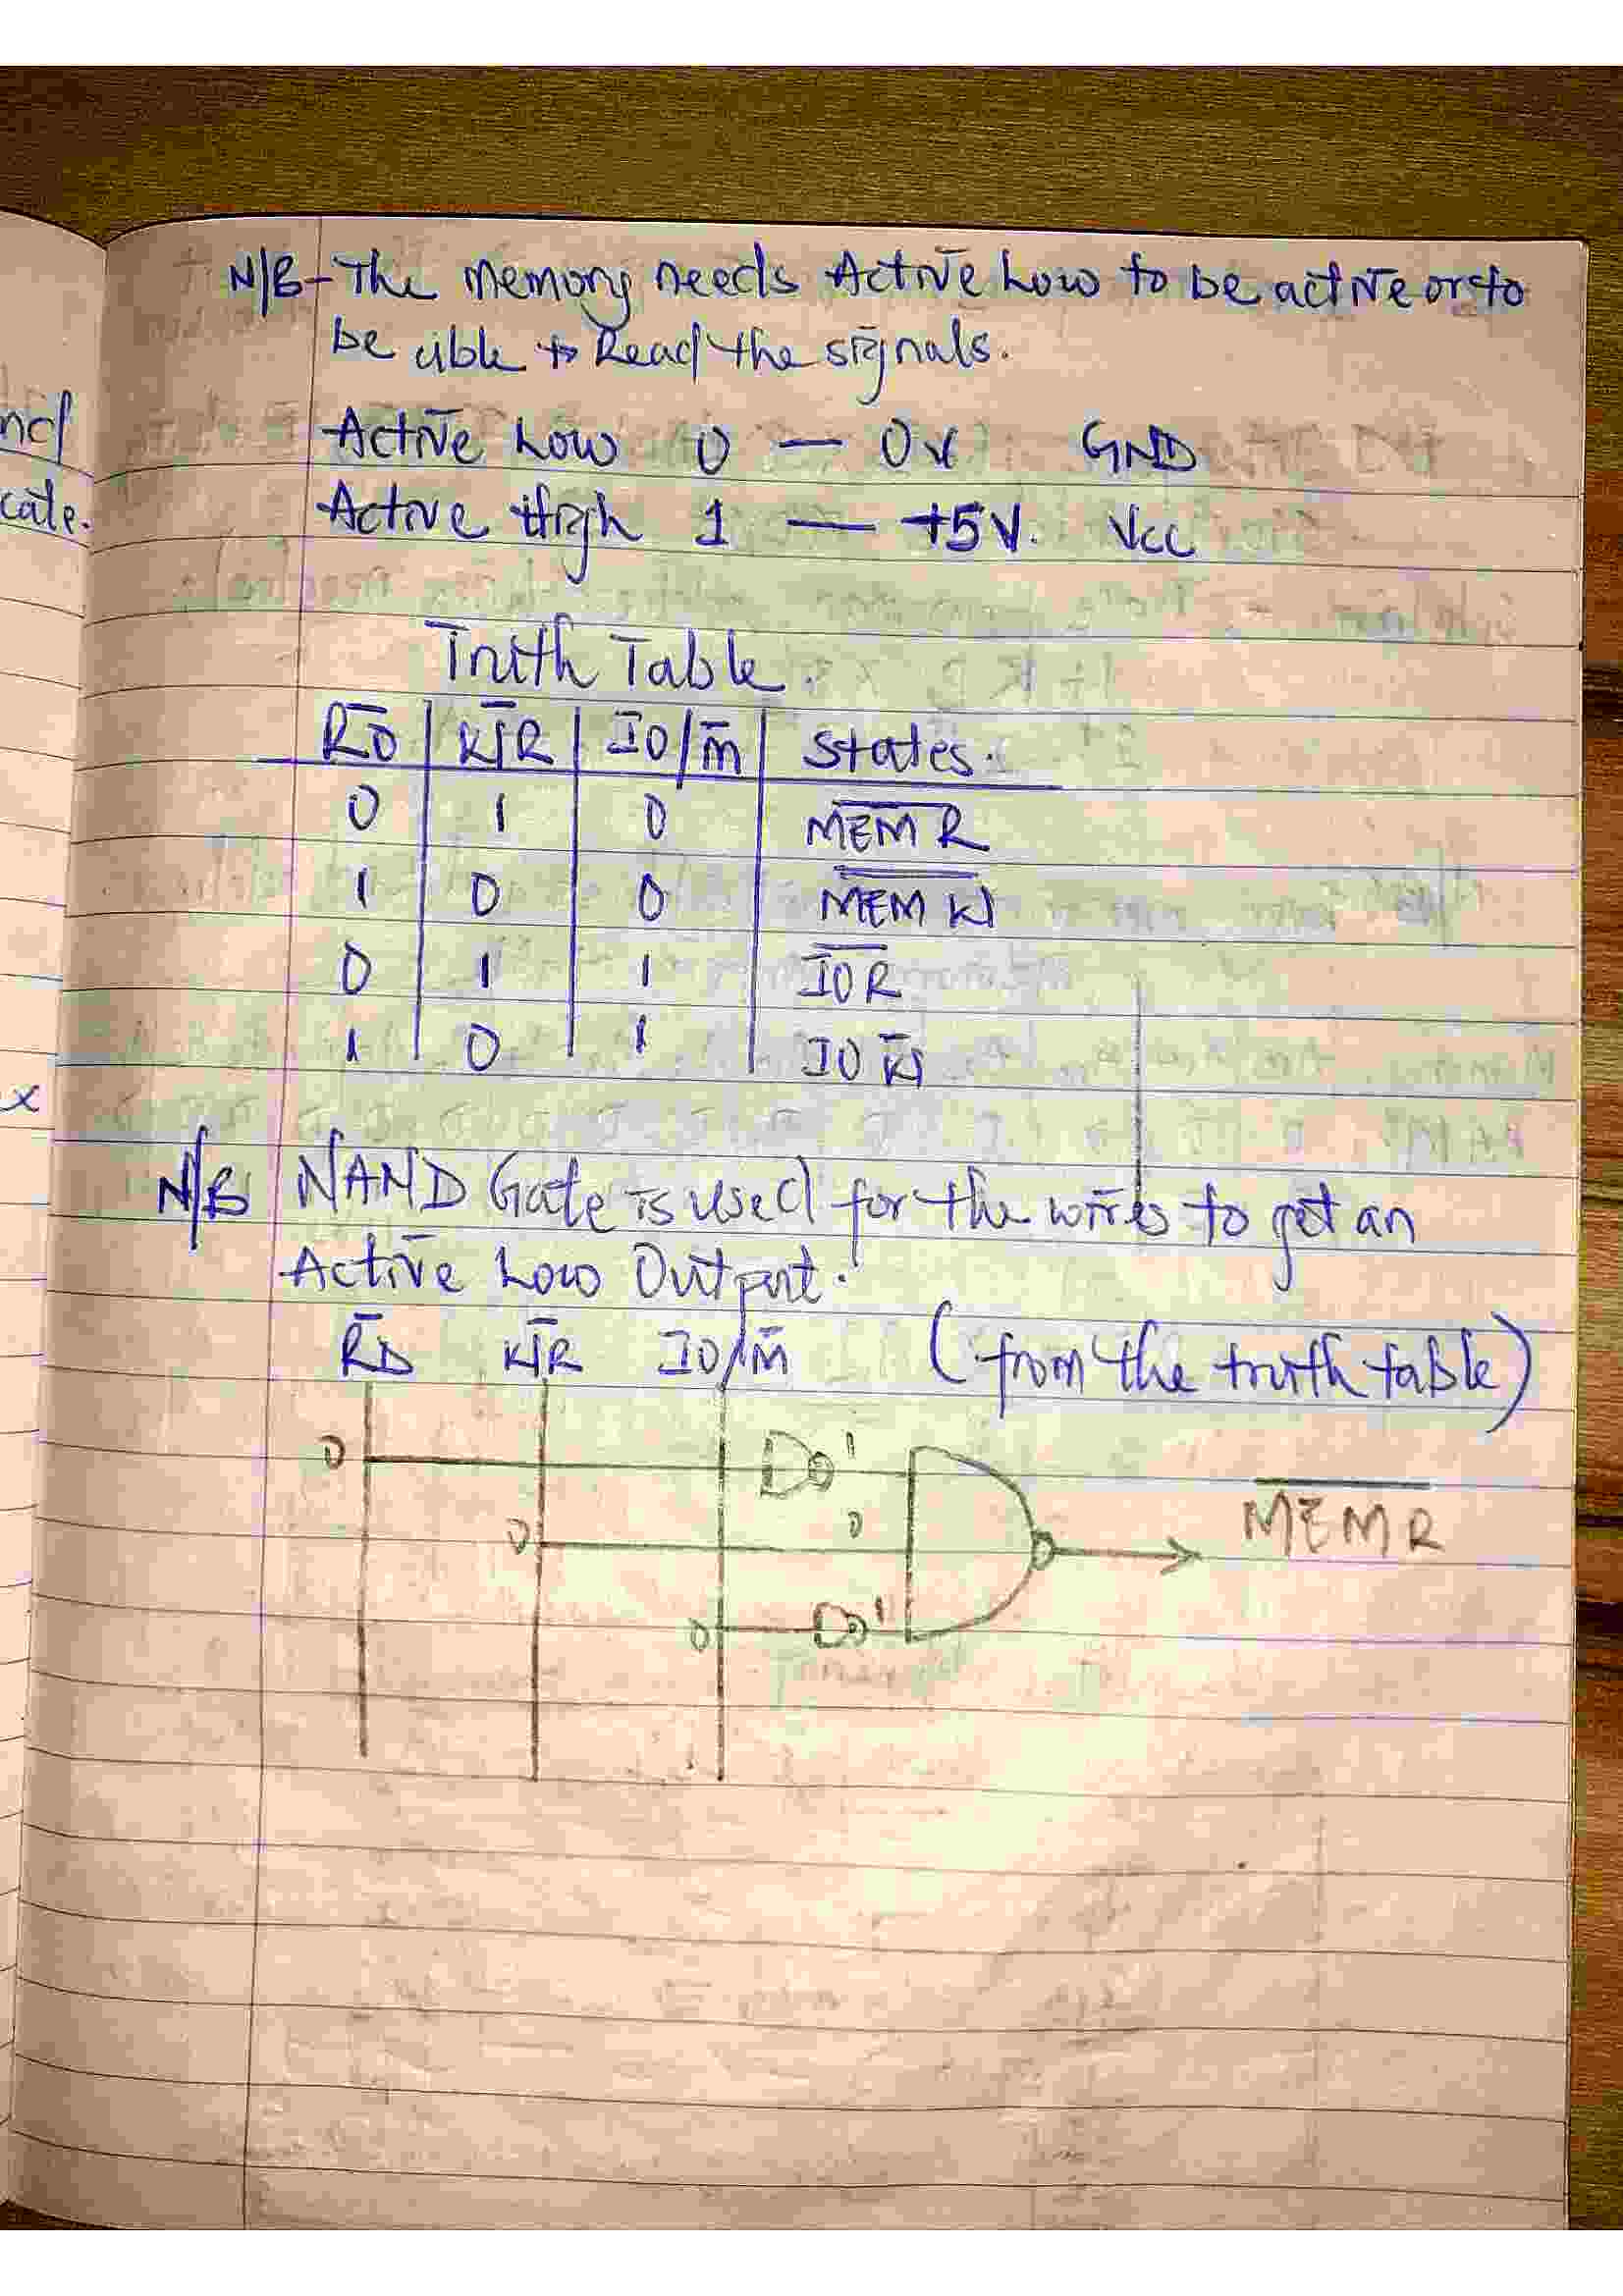 N/B - The memory needs Active Low to be active or to
be able to Read the signals.
nd
Active Low 0 — 0V GND
cate.
Active High 1 — +5V. Vcc
Truth Table.
R̅D̅ | W̅R̅ | IO/M̅ | States.
0 1 0 M̅E̅M̅R̅
1 0 0 M̅E̅M̅W̅
0 1 1 I̅O̅R̅
1 0 1 IOW̅
x
N/B NAND Gate is used for the wires to get an
Active Low Output.
R̅D̅ W̅R̅ IO/M̅ (from the truth table)
0 1
0 0 M̅E̅M̅R̅
0 1